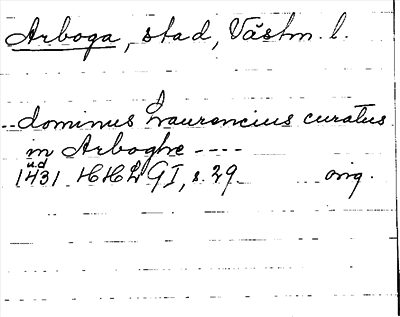 Arboga, stad, Västm. l.
dominus Laurencius curatus
in Arboghe ----
u.d
1431 HHLG I, s. 29 orig.